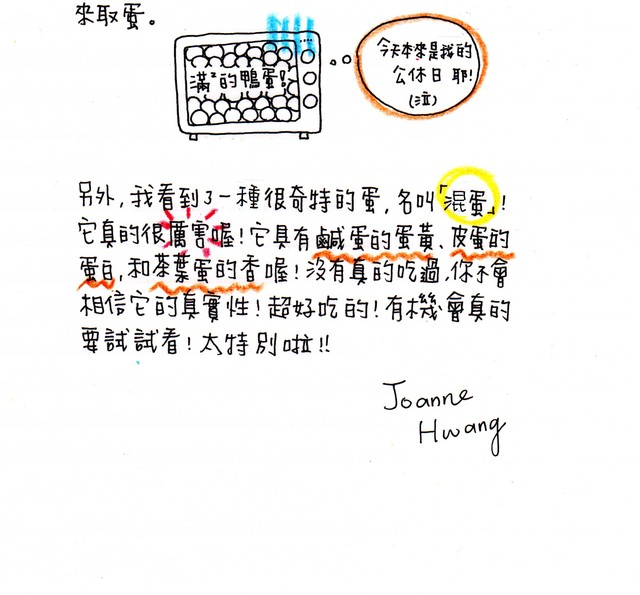 來取蛋。
滿²的鴨蛋!
今天本來是我的
公休日 耶!
(泣)
另外,我看到了一種很奇特的蛋,名叫「混蛋」!
它真的很厲害喔!它具有鹹蛋的蛋黃、皮蛋的
蛋白,和茶葉蛋的香喔!沒有真的吃過,你不會
相信它的真實性!超好吃的!有機會真的
要試試看!太特別啦!!
Joanne
Hwang